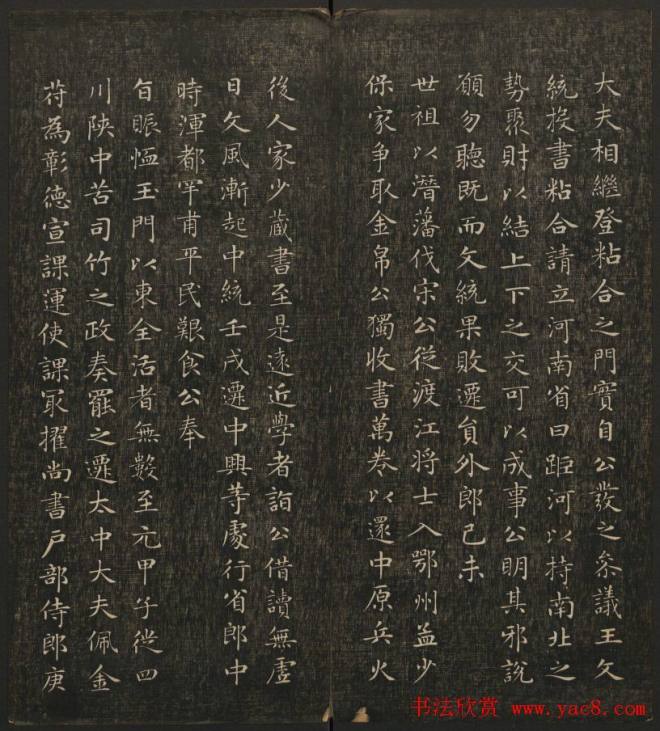 大夫相繼登粘合之門實自公發之叅議王文
統投書粘合請立河南省曰距河以持南北之
勢聚財以結上下之交可以成事公明其邪說
願勿聽既而文統果敗遷貟外郎己未
世祖以潛藩伐宋公從渡江将士入鄂州益少
保家爭取金帛公獨收書萬卷以還中原兵火
後人家少蔵書至是遠近學者詣公借讀無虛
日文風漸起中統壬戌遷中興等處行省郎中
時渾都罕甫平民艱食公奉
旨賑恤玉門以東全活者無數至元甲子從四
川陝中苦司竹之政奏罷之遷太中大夫佩金
苻為彰德宣課運使課冣擢尚書戶部侍郎庚
书法欣赏 www.yac8.com